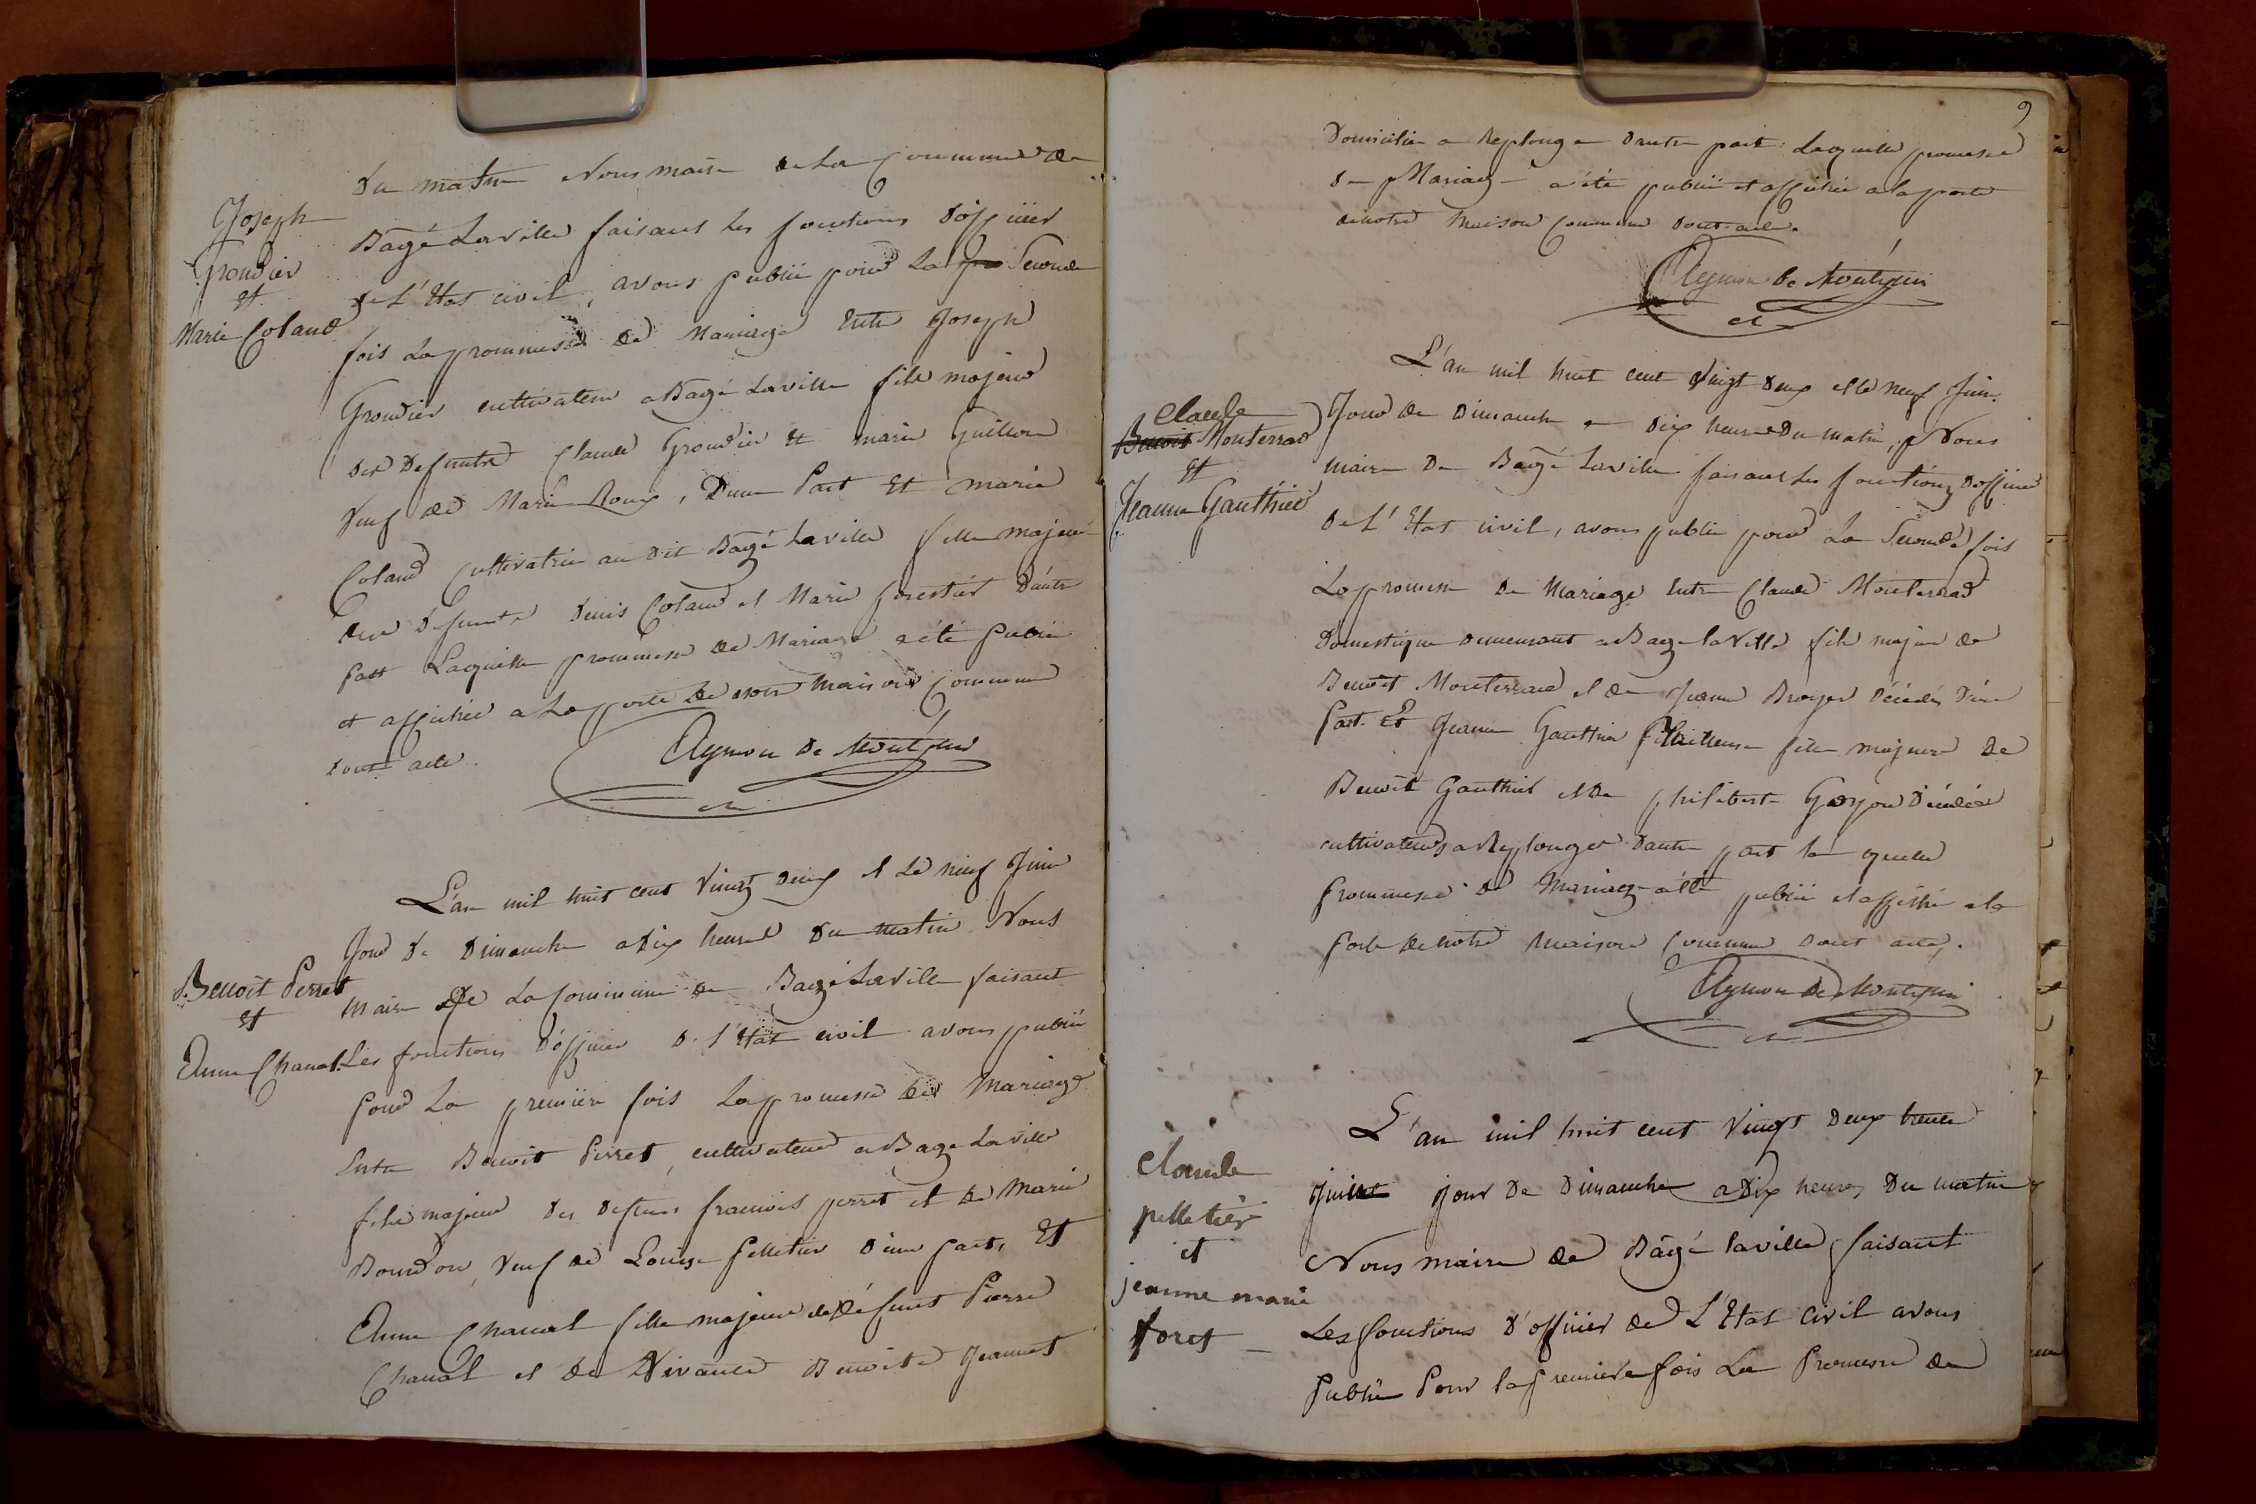 Joseph
Grondier
et
Marie Coland
du matin Nous maire de La Commune de
Bagé Laville faisant les fonctions d'officier
de L'Etat civil, avons publié pour La Seconde
fois La prommesse de Mariage Entre Joseph
Grondier cultivateur a Bagé Laville fils majeur
des defunts Claude Grondier et marie Guillon
veuf de Marie Roux, D'une Part Et marie
Coland Cultivatrice au dit Bagé Laville fille majeure
des defunts Denis Coland et Marie forestier D'autre
Part Laquelle prommesse de Mariage a été publiée
et affichée a La porte de notre Maison Commune
dont acte.
Aymon de Montépin
Benoit Perret
Et
Anne Chanal
L'an mil huit cent vingt deux et Le neuf Juin
Jour de Dimanche a Dix heures Du matin Nous
Maire De La Commune de Bagé Laville faisant
Les fonctions d'officier de l'état civil avons publié
pour La première fois La promesse de Mariage
Entre Benoit Perret, cultivateur a Bagé Laville
fils majeur des defunts francois perret et de Marie
Bourdon, veuf de Louise Pelletier d'une part, Et
Anne Chanal fille majeure de défunt Pierre
Chanal et de vivante Benoite Jeannet
9
Domiciliée a Replonge D'autre part Laquelle promesse
de Mariage a été publiée et affichée a la porte
de notre Maison Commune dont acte.
Aymon de Montépin
Claude
Benoit Monterrad
Et
Jeanne Gauthier
L'an mil huit cent Vingt deux et le neuf Juin
Jour de Dimanche a Dix heures Du matin, Nous
maire De Bagé Laville faisant Les fonctions D'officier
De L'Etat civil, avons publié pour La Seconde fois
La promesse de Mariage Entre Claude Monterrad
Domestique demeurant a Bagé la Ville fils majeur de
Benoit Monterrad et de Jeanne Broyer Décédés D'une
Part. Et Jeanne Gauthier fille majeure de
Benoit Gauthier et De philiberte Décédés
cultivateurs a Replonges D'autre part la quelle
prommesse de Mariage a été publiée et affichée a la
porte de notre Maison Commune dont acte.
Aymon de Montépin
Claude
pelletier
et
jeanne marie
foret
L'an mil huit cent Vingt Deux trente
juin jour De Dimanche a Dix heures Du matin
Nous maire de Bâgé laville faisant
Les fonctions d'officier de L'Etat Civil avons
Publié Pour la Première fois La Promesse de